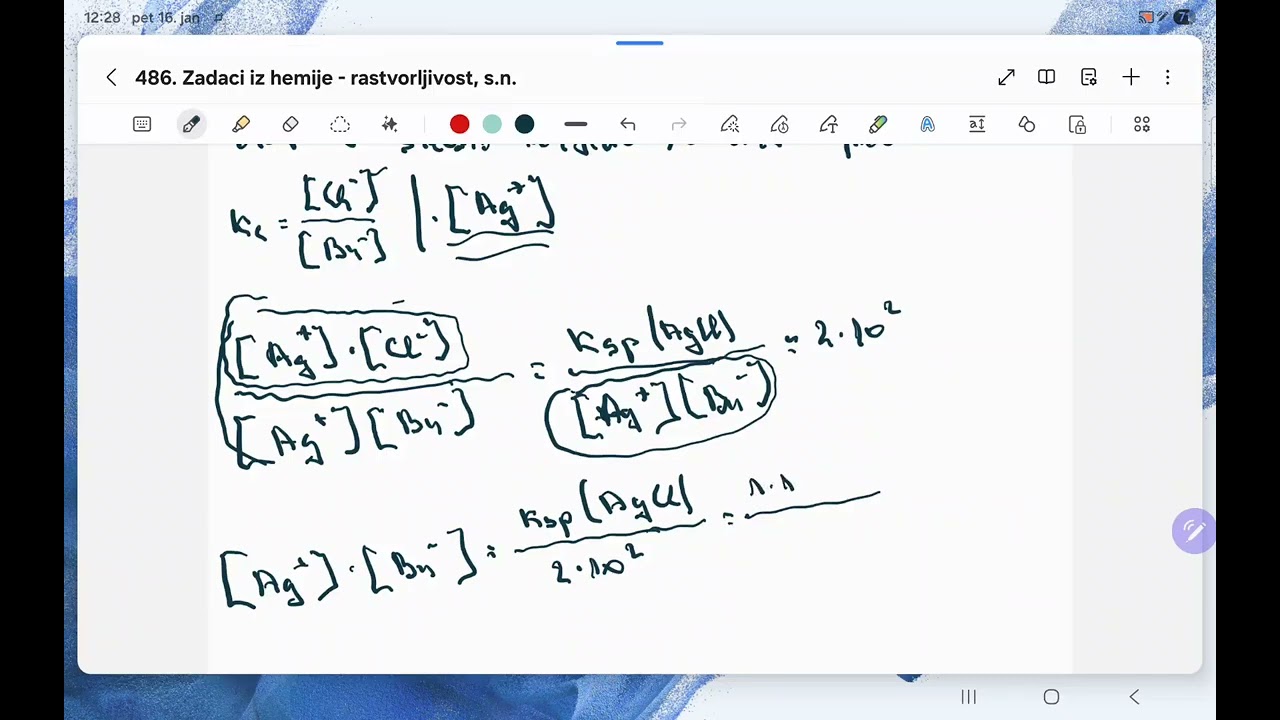 12:28 pet 16. jan
486. Zadaci iz hemije - rastvorljivost, s.n.
Kc = [Cl⁻] / [Br⁻] | · [Ag⁺]
[Ag⁺] · [Cl⁻] / [Ag⁺] [Br⁻] = Ksp (AgCl) / [Ag⁺] [Br⁻] = 2 · 10²
[Ag⁺] · [Br⁻] = Ksp (AgCl) / 2 · 10² = 1.1